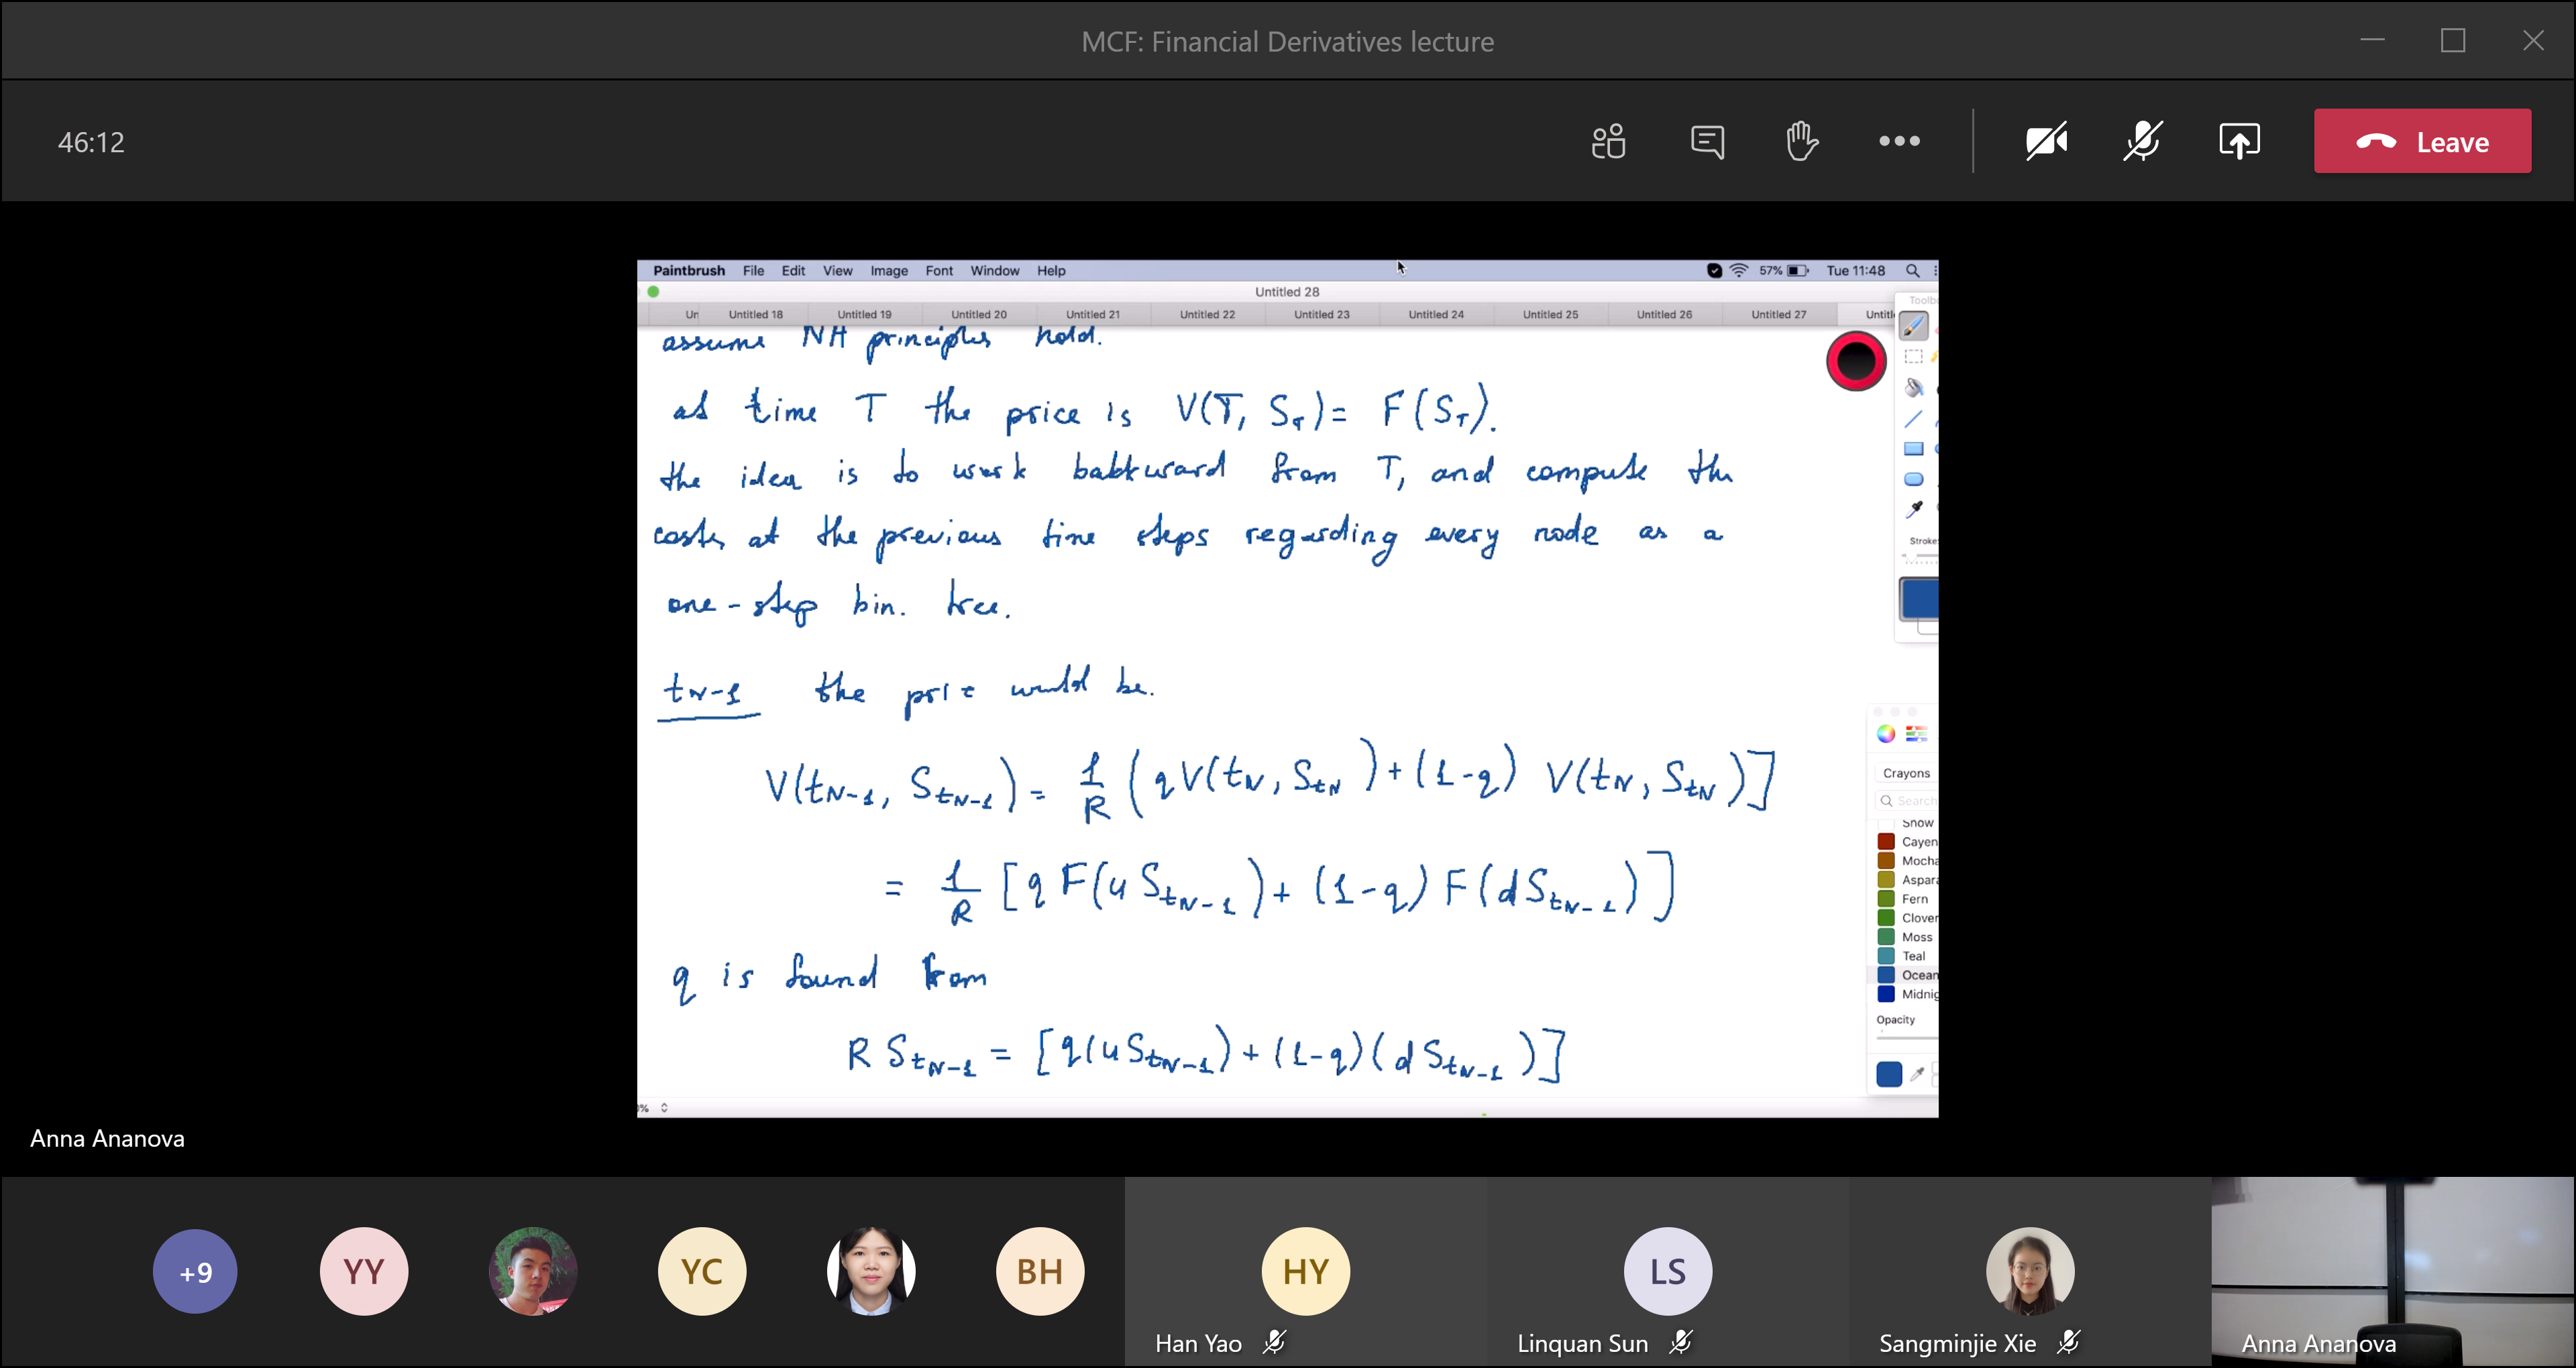 MCF: Financial Derivatives lecture
46:12
Leave
Paintbrush File Edit View Image Font Window Help
57% Tue 11:48
Untitled 28
Un Untitled 18 Untitled 19 Untitled 20 Untitled 21 Untitled 22 Untitled 23 Untitled 24 Untitled 25 Untitled 26 Untitled 27 Untitl
Toolb
assume NA principles hold.
at time T the price is V(T, S_T) = F(S_T).
the idea is to work backward from T, and compute the
costs at the previous time steps regarding every node as a
one-step bin. tree.
t_{N-1} the price would be.
V(t_{N-1}, S_{t_{N-1}}) = 1/R (q V(t_N, S_{t_N}) + (1-q) V(t_N, S_{t_N})]
= 1/R [q F(u S_{t_{N-1}}) + (1-q) F(d S_{t_{N-1}})]
q is found from
R S_{t_{N-1}} = [q(u S_{t_{N-1}}) + (1-q)(d S_{t_{N-1}})]
Stroke:
Crayons
Search
Snow
Cayen
Mocha
Aspara
Fern
Clover
Moss
Teal
Ocean
Midnig
Opacity
%
Anna Ananova
+9
YY
YC
BH
HY
LS
Han Yao
Linquan Sun
Sangminjie Xie
Anna Ananova